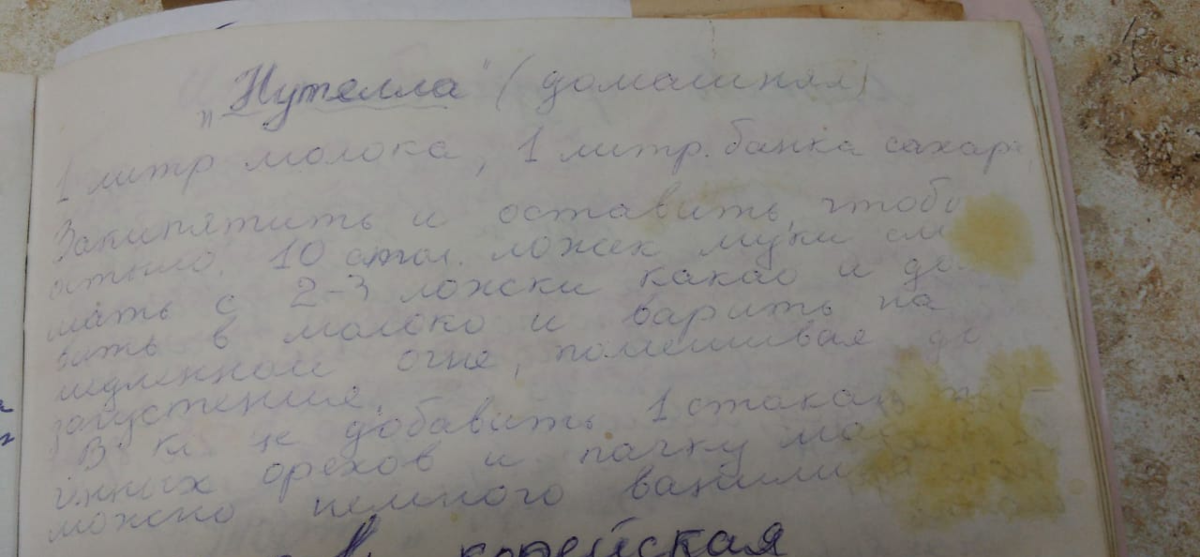 „Нутелла" (домашняя)
1 литр молока, 1 литр. банка сахара
Закипятить и оставить, чтобы
остыло. 10 стол. ложек муки
мать с 2-3 ложски какао и
вить в молоко и варить на
медленном огне, помешивая до
загустения.
В добавить 1 стакан
орехов и пачку
можно немного
корейская